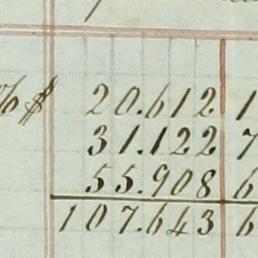 % $ 20.612 1
31.122 7
55.908 6
107.643 6